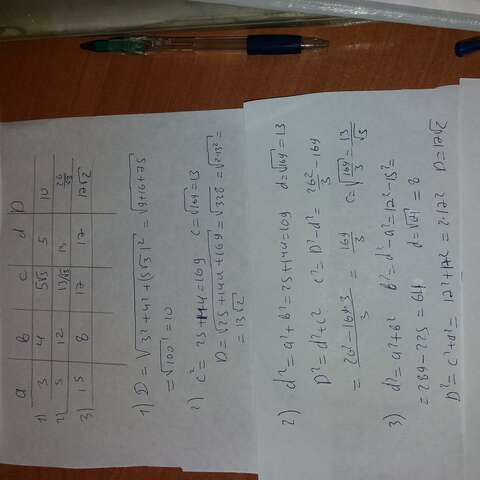 a b c d D
1) 3 4 5√3 5 10
2) 5 12 13/√3 13 26/√3
3) 15 8 17 17 17√2
1) D = √3² + 4² + (5√3)² = √9+16+75
= √100 = 10
2) c² = 25 + 144 = 169 c = √169 = 13
D = √25 + 144 + 169 = √338 = √2·13² =
= 13√2
2) d² = a² + b² = 25 + 144 = 169 d = √169 = 13
D² = d² + c² c² = D² - d² = 26²/3 - 169
= 26² - 169·3/3 = 169/3 c = √169/3 = 13/√3
3) d² = a² + b² b² = d² - a² = 17² - 15² =
= 289 - 225 = 64 d = √64 = 8
D² = c² + d² = 17² + 17² = 2·17² D = 17√2